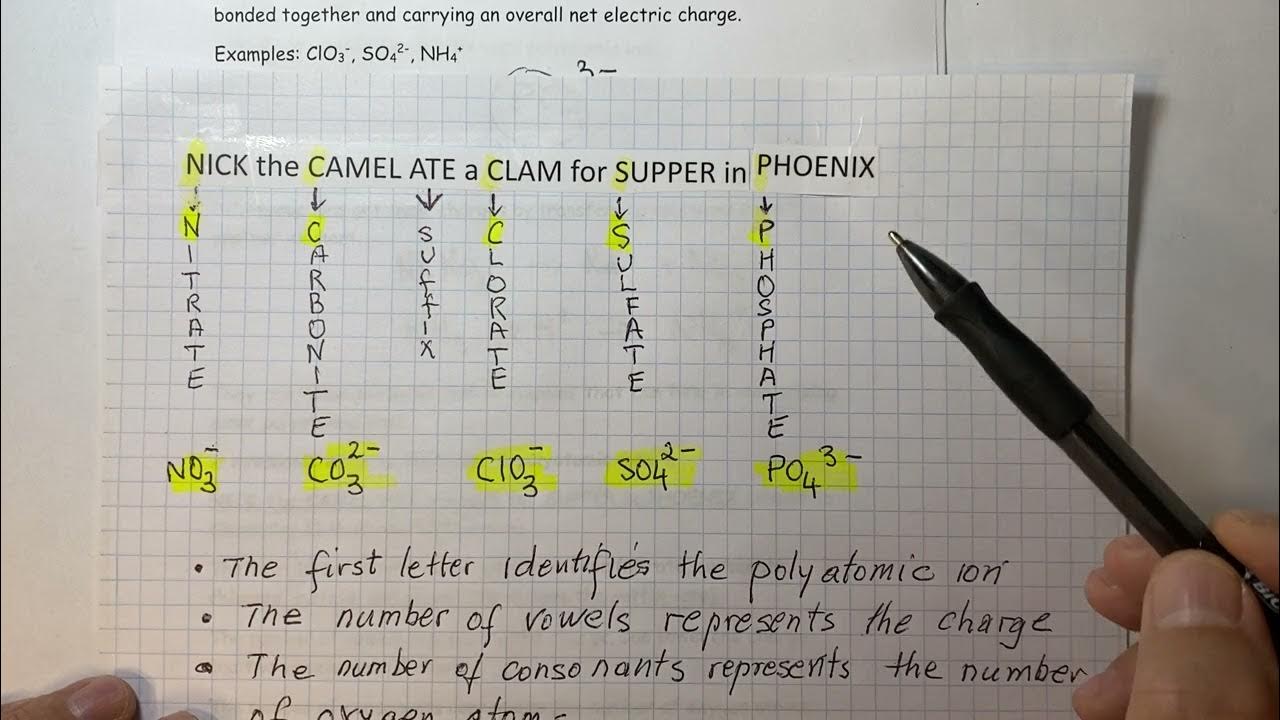 bonded together and carrying an overall net electric charge.
Examples: ClO₃⁻, SO₄²⁻, NH₄⁺
3-
NICK the CAMEL ATE a CLAM for SUPPER in PHOENIX
NITRATE
CARBONITE
SUffix
CLORATE
SULFATE
PHOSPHATE
NO₃⁻ CO₃²⁻ ClO₃⁻ SO₄²⁻ PO₄³⁻
• The first letter identifies the polyatomic ion
• The number of vowels represents the charge
• The number of consonants represents the number
of oxygen atom